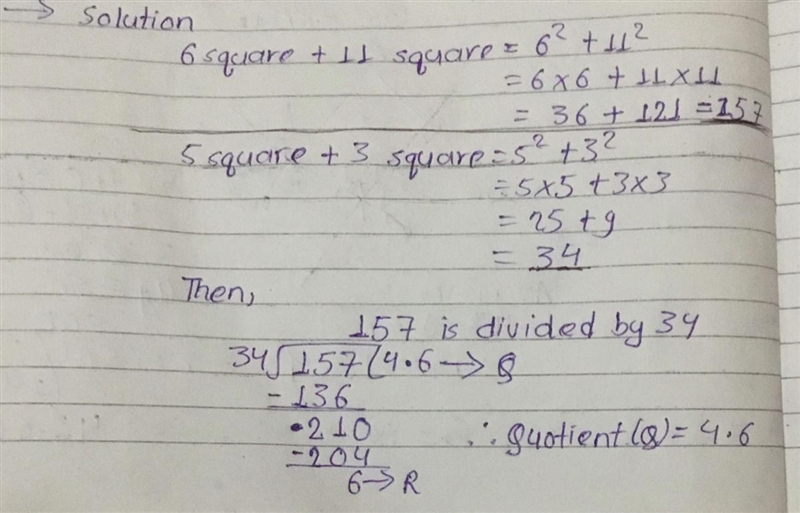 → Solution
6 square + 11 square = 6² + 11²
= 6×6 + 11×11
= 36 + 121 = 157
5 square + 3 square = 5² + 3²
= 5×5 + 3×3
= 25 + 9
= 34
Then,
157 is divided by 34
34√157(4.6 → Q
-136
210
-204
6 → R
∴ Quotient (Q) = 4.6